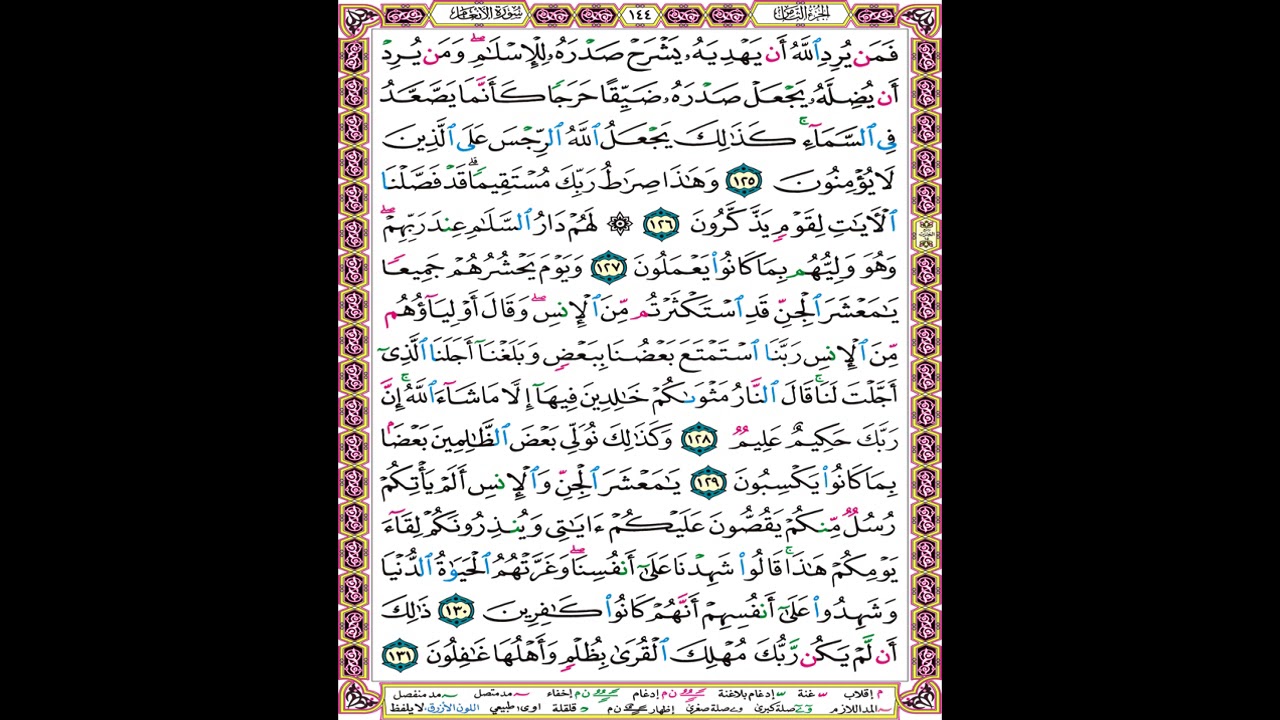 سورة الأنعام ١٤٤ الجزء الثامن
فَمَن يُرِدِ ٱللَّهُ أَن يَهۡدِيَهُۥ يَشۡرَحۡ صَدۡرَهُۥ لِلۡإِسۡلَٰمِۖ وَمَن يُرِدۡ
أَن يُضِلَّهُۥ يَجۡعَلۡ صَدۡرَهُۥ ضَيِّقًا حَرَجٗا كَأَنَّمَا يَصَّعَّدُ
فِي ٱلسَّمَآءِۚ كَذَٰلِكَ يَجۡعَلُ ٱللَّهُ ٱلرِّجۡسَ عَلَى ٱلَّذِينَ
لَا يُؤۡمِنُونَ ١٢٥ وَهَٰذَا صِرَٰطُ رَبِّكَ مُسۡتَقِيمٗاۗ قَدۡ فَصَّلۡنَا
ٱلۡأٓيَٰتِ لِقَوۡمٖ يَذَّكَّرُونَ ١٢٦ ۞ لَهُمۡ دَارُ ٱلسَّلَٰمِ عِندَ رَبِّهِمۡۖ
وَهُوَ وَلِيُّهُم بِمَا كَانُواْ يَعۡمَلُونَ ١٢٧ وَيَوۡمَ يَحۡشُرُهُمۡ جَمِيعٗا
يَٰمَعۡشَرَ ٱلۡجِنِّ قَدِ ٱسۡتَكۡثَرۡتُم مِّنَ ٱلۡإِنسِۖ وَقَالَ أَوۡلِيَآؤُهُم
مِّنَ ٱلۡإِنسِ رَبَّنَا ٱسۡتَمۡتَعَ بَعۡضُنَا بِبَعۡضٖ وَبَلَغۡنَآ أَجَلَنَا ٱلَّذِيٓ
أَجَّلۡتَ لَنَاۚ قَالَ ٱلنَّارُ مَثۡوَىٰكُمۡ خَٰلِدِينَ فِيهَآ إِلَّا مَا شَآءَ ٱللَّهُۚ إِنَّ
رَبَّكَ حَكِيمٌ عَلِيمٞ ١٢٨ وَكَذَٰلِكَ نُوَلِّي بَعۡضَ ٱلظَّٰلِمِينَ بَعۡضَۢا
بِمَا كَانُواْ يَكۡسِبُونَ ١٢٩ يَٰمَعۡشَرَ ٱلۡجِنِّ وَٱلۡإِنسِ أَلَمۡ يَأۡتِكُمۡ
رُسُلٞ مِّنكُمۡ يَقُصُّونَ عَلَيۡكُمۡ ءَايَٰتِي وَيُنذِرُونَكُمۡ لِقَآءَ
يَوۡمِكُمۡ هَٰذَاۚ قَالُواْ شَهِدۡنَا عَلَىٰٓ أَنفُسِنَاۖ وَغَرَّتۡهُمُ ٱلۡحَيَوٰةُ ٱلدُّنۡيَا
وَشَهِدُواْ عَلَىٰٓ أَنفُسِهِمۡ أَنَّهُمۡ كَانُواْ كَٰفِرِينَ ١٣٠ ذَٰلِكَ
أَن لَّمۡ يَكُن رَّبُّكَ مُهۡلِكَ ٱلۡقُرَىٰ بِظُلۡمٖ وَأَهۡلُهَا غَٰفِلُونَ ١٣١
م إقلاب غنة إدغام بلاغنة ن م إدغام ن م إخفاء مد متصل مد منفصل
المد اللازم صلة كبرى صلة صغرى إظهار ن م قلقلة اوى طبيعي اللون الأزرق لا يلفظ